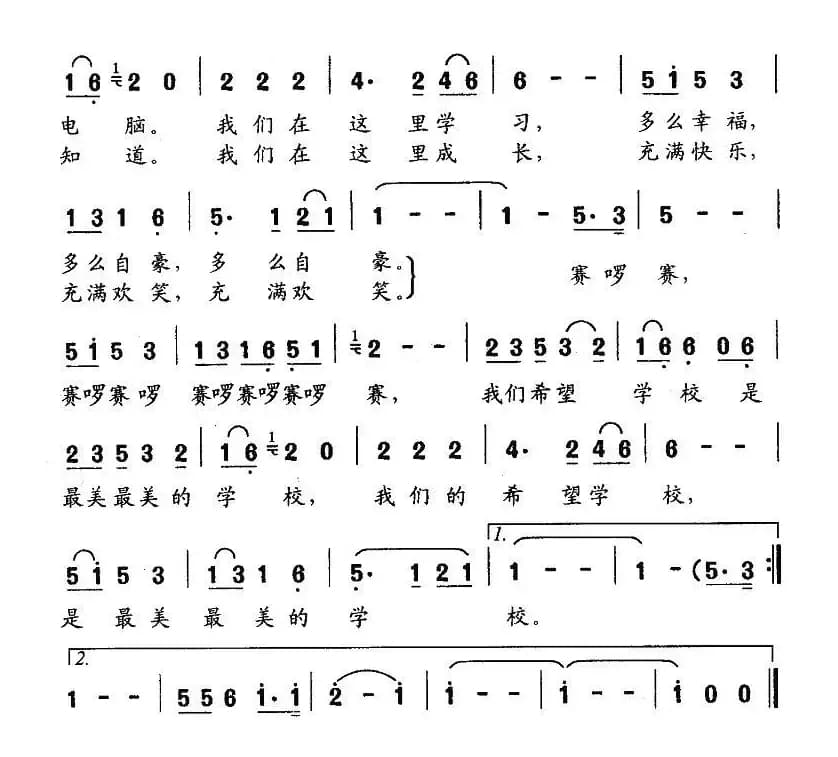 1 6 1 2 0 | 2 2 2 | 4· 2 4 6 | 6 - - | 5 1 5 3 |
电 脑。 我 们 在 这 里 学 习， 多 么 幸 福，
知 道。 我 们 在 这 里 成 长， 充 满 快 乐，
1 3 1 6 | 5· 1 2 1 | 1 - - | 1 - 5· 3 | 5 - - |
多 么 自 豪， 多 么 自 豪。 赛 啰 赛，
充 满 欢 笑， 充 满 欢 笑。
5 1 5 3 | 1 3 1 6 5 1 | 1 2 - - | 2 3 5 3 2 | 1 6 6 0 6 |
赛啰赛 啰 赛啰赛啰赛啰 赛， 我们希望 学 校 是
2 3 5 3 2 | 1 6 1 2 0 | 2 2 2 | 4· 2 4 6 | 6 - - |
最美最美的 学 校， 我 们 的 希 望 学 校，
1.
5 1 5 3 | 1 3 1 6 | 5· 1 2 1 | 1 - - | 1 - (5· 3 :‖
是 最 美 最 美 的 学 校。
2.
1 - - | 5 5 6 1· 1 | 2 - 1 | 1 - - | 1 - - | 1 0 0 ‖